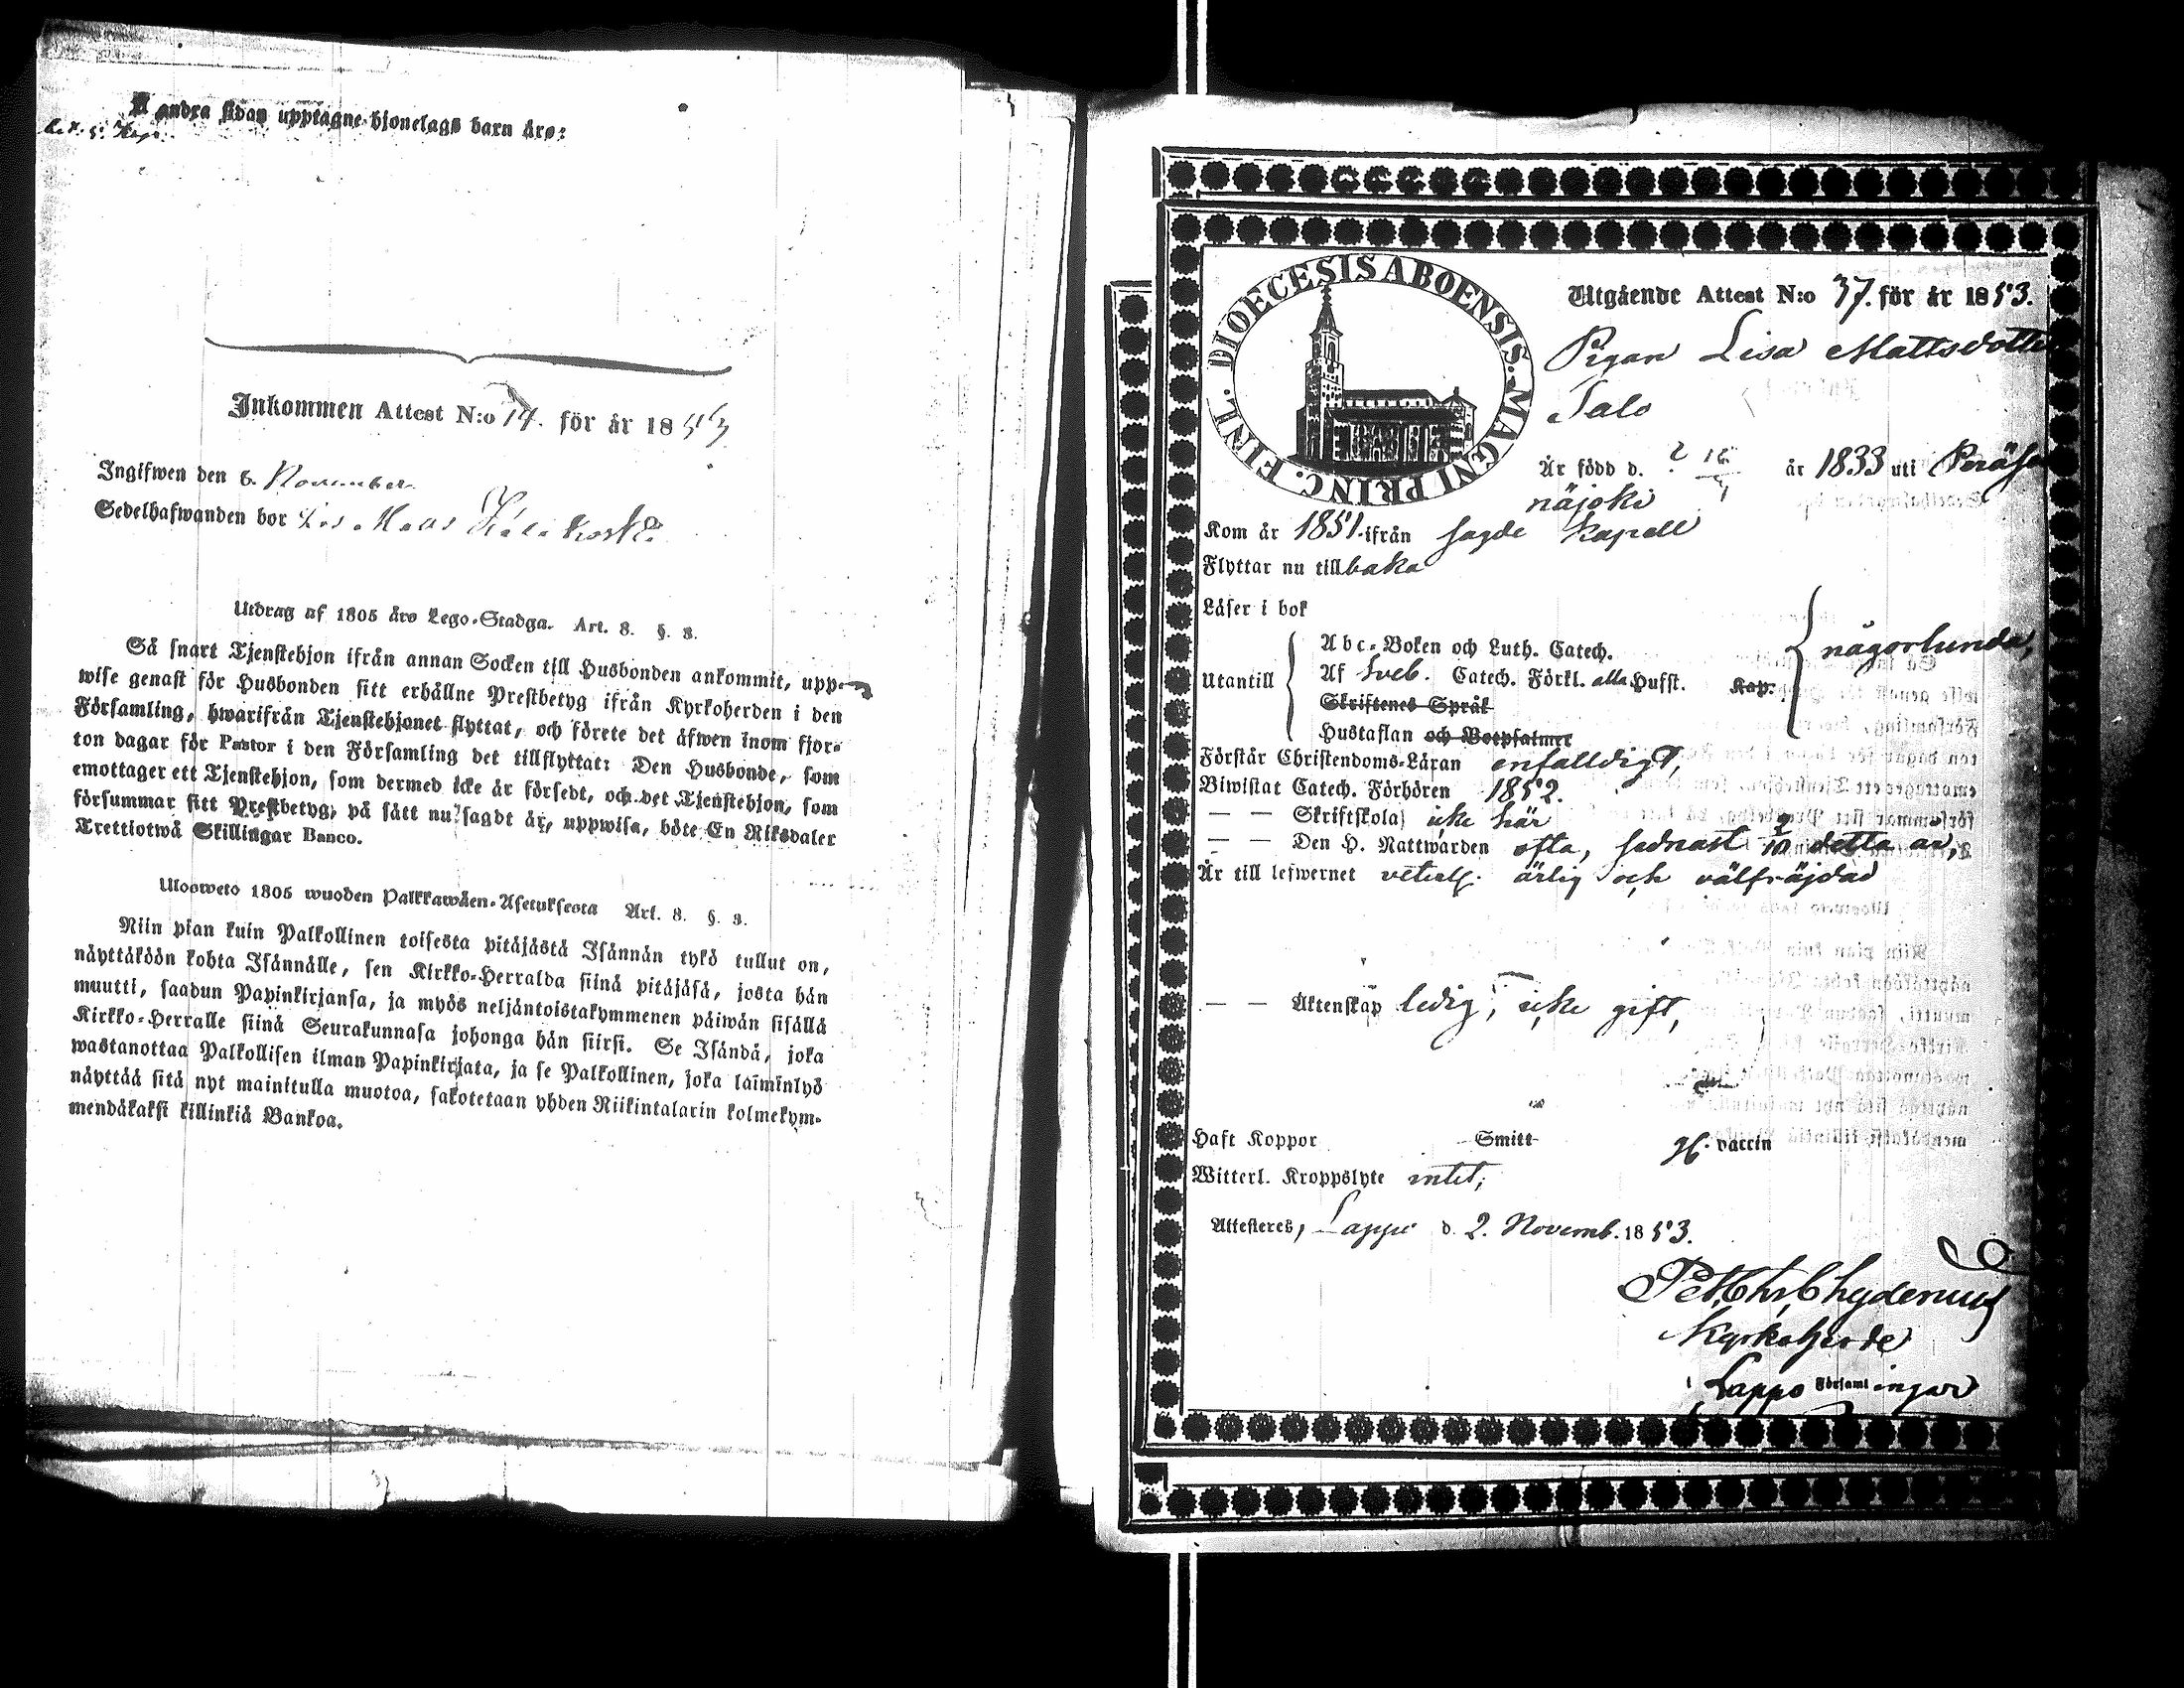 Å andra sidan upptagne hjonelags barn äro:
Inkommen Attest N:o 14. för år 1853
Ingifwen den 6. November
Sedelhafwanden bor
Utdrag af 1805 års Lego-Stadga. Art. 8. §. 3.
Så snart Tjenstehjon ifrån annan Socken till Husbonden ankommit, upp-
wise genast för Husbonden sitt erhållne Prestbetyg ifrån Kyrkoherden i den
Församling, hwarifrån Tjenstehjonet flyttat, och förete det äfwen inom fjor-
ton dagar för Pastor i den Församling det tillflyttat: Den Husbonde, som
emottager ett Tjenstehjon, som dermed icke är försedt, och det Tjenstehjon, som
försummar sitt Prestbetyg, på sätt nu sagdt är, uppwisa, böte En Riksdaler
Trettiotwå Skillingar Banco.
Ulosweto 1805 wuoden Palkkawäen-Asetuksesta Art. 8. §. 3.
Niin pian kuin Palkollinen toisesta pitäjästä Isännän tykö tullut on,
näyttäköön kohta Isännälle, sen Kirkko-Herralda siinä pitäjäsä, josta hän
muutti, saadun Papinkirjansa, ja myös neljäntoistakymmenen päiwän sisällä
Kirkko-Herralle siinä Seurakunnasa johonga hän siirsi. Se Isändä, joka
wastanottaa Palkollisen ilman Papinkirjata, ja se Palkollinen, joka laiminlyö
näyttää sitä nyt mainitulla muotoa, sakotetaan yhden Riikintalarin kolmekym-
mendäkaksi killinkiä Bankoa.
DIOECESIS ABOENSIS. MAGNI PRINC. FINL.
Utgående Attest N:o 37. för år 1853.
Pigan Lisa Mattsdotter
Salo
Är född d. år 1833 uti Peräsei
näjoki
Kom år 1851 ifrån sagde Kapell
Flyttar nu tillbaka
Läser i bok
Abc-Boken och Luth. Catech.
Utantill Af Sveb. Catech. Förkl. alla Hufst. Kap. någorlunda,
Skriftenes Språk
Hustaflan och Botpsalmer
Förstår Christendoms-Läran enfalldigt,
Biwistat Catech. Förhören 1852.
— — Skriftskola icke här
— — Den H. Nattwarden ofta, sednast 2/10 detta år,
Är till lefwernet veterl. ärlig och välfräjdad
— — Äktenskap ledig, icke gift,
Haft Koppor Smitt vaccin
Witterl. Kroppslyte intet;
Attesteres, Lappo d. 2. Novemb. 1853.
Chydenius
Kyrkoherde
i Lappo Församl ingar